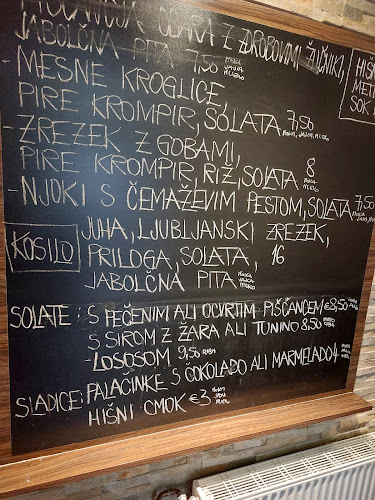 JUHA Z DROBOVIMI ŽLIČNIKI,
JABOLČNA PITA 7,50
HIŠN
MET
SOK
- MESNE KROGLICE,
PIRE KROMPIR, SOLATA 7,50
- ZREZEK Z GOBAMI,
PIRE KROMPIR, RIŽ, SOLATA 8
- NJOKI S ČEMAŽEVIM PESTOM, SOLATA 7,50
KOSILO
JUHA, LJUBLJANSKI ZREZEK,
PRILOGA, SOLATA, 16
JABOLČNA PITA
SOLATE: S PEČENIM ALI OCVRTIM PIŠČANCEM €8,50
S SIROM Z ŽARA ALI TUNINO 8,50
- LOSOSOM 9,50
SLADICE: PALAČINKE S ČOKOLADO ALI MARMELADO 4
HIŠNI CMOK €3